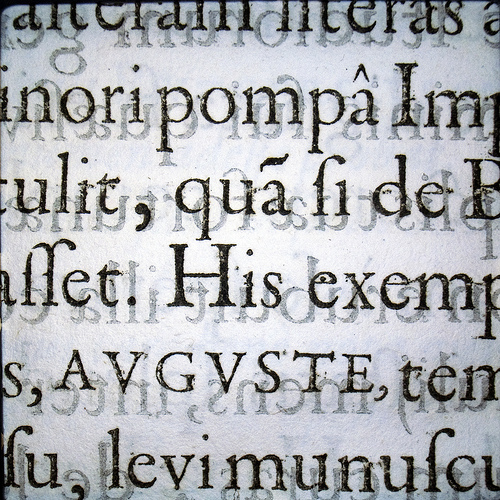 alteram literas a
inori pompâ Imp
tulit, quã ſi de P
aſſet. His exemp
s, AVGVSTE, tem
ſu, levi munuſcu